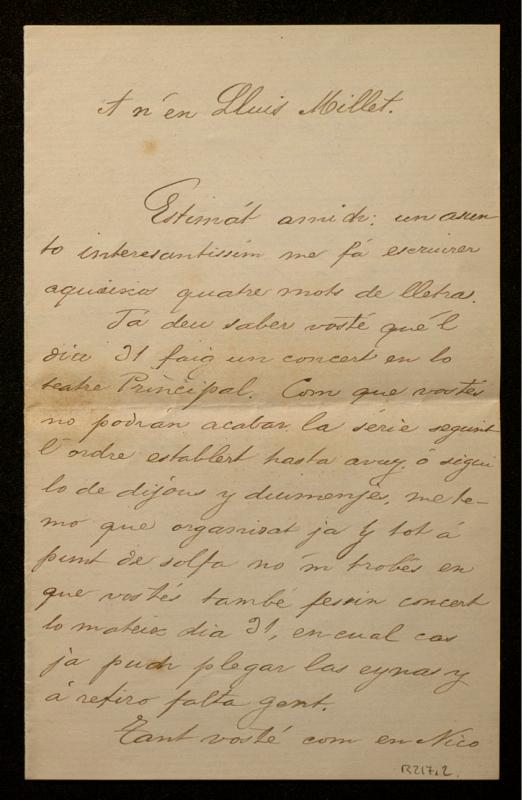 A n'en Lluis Millet.
Estimát amich: un asun
to interesantissim me fá escriurer
aqueixos quatre mots de lletra.
Já deu saber vosté qué'l
dia 31 faig un concert en lo
teatre Principal. Com que vostés
no podrán acabar la série seguint
l'ordre establert hasta avuy, ó sigui
lo de dijous y diumenjes, me te-
mo que organisat ja y tot á
punt de solfa no'm trobés en
que vostés també fessin concert
lo mateix dia 31, en cual cas
ja puch plegar las eynas y
á retiro falta gent.
Tant vosté com en Nico
R217,2.